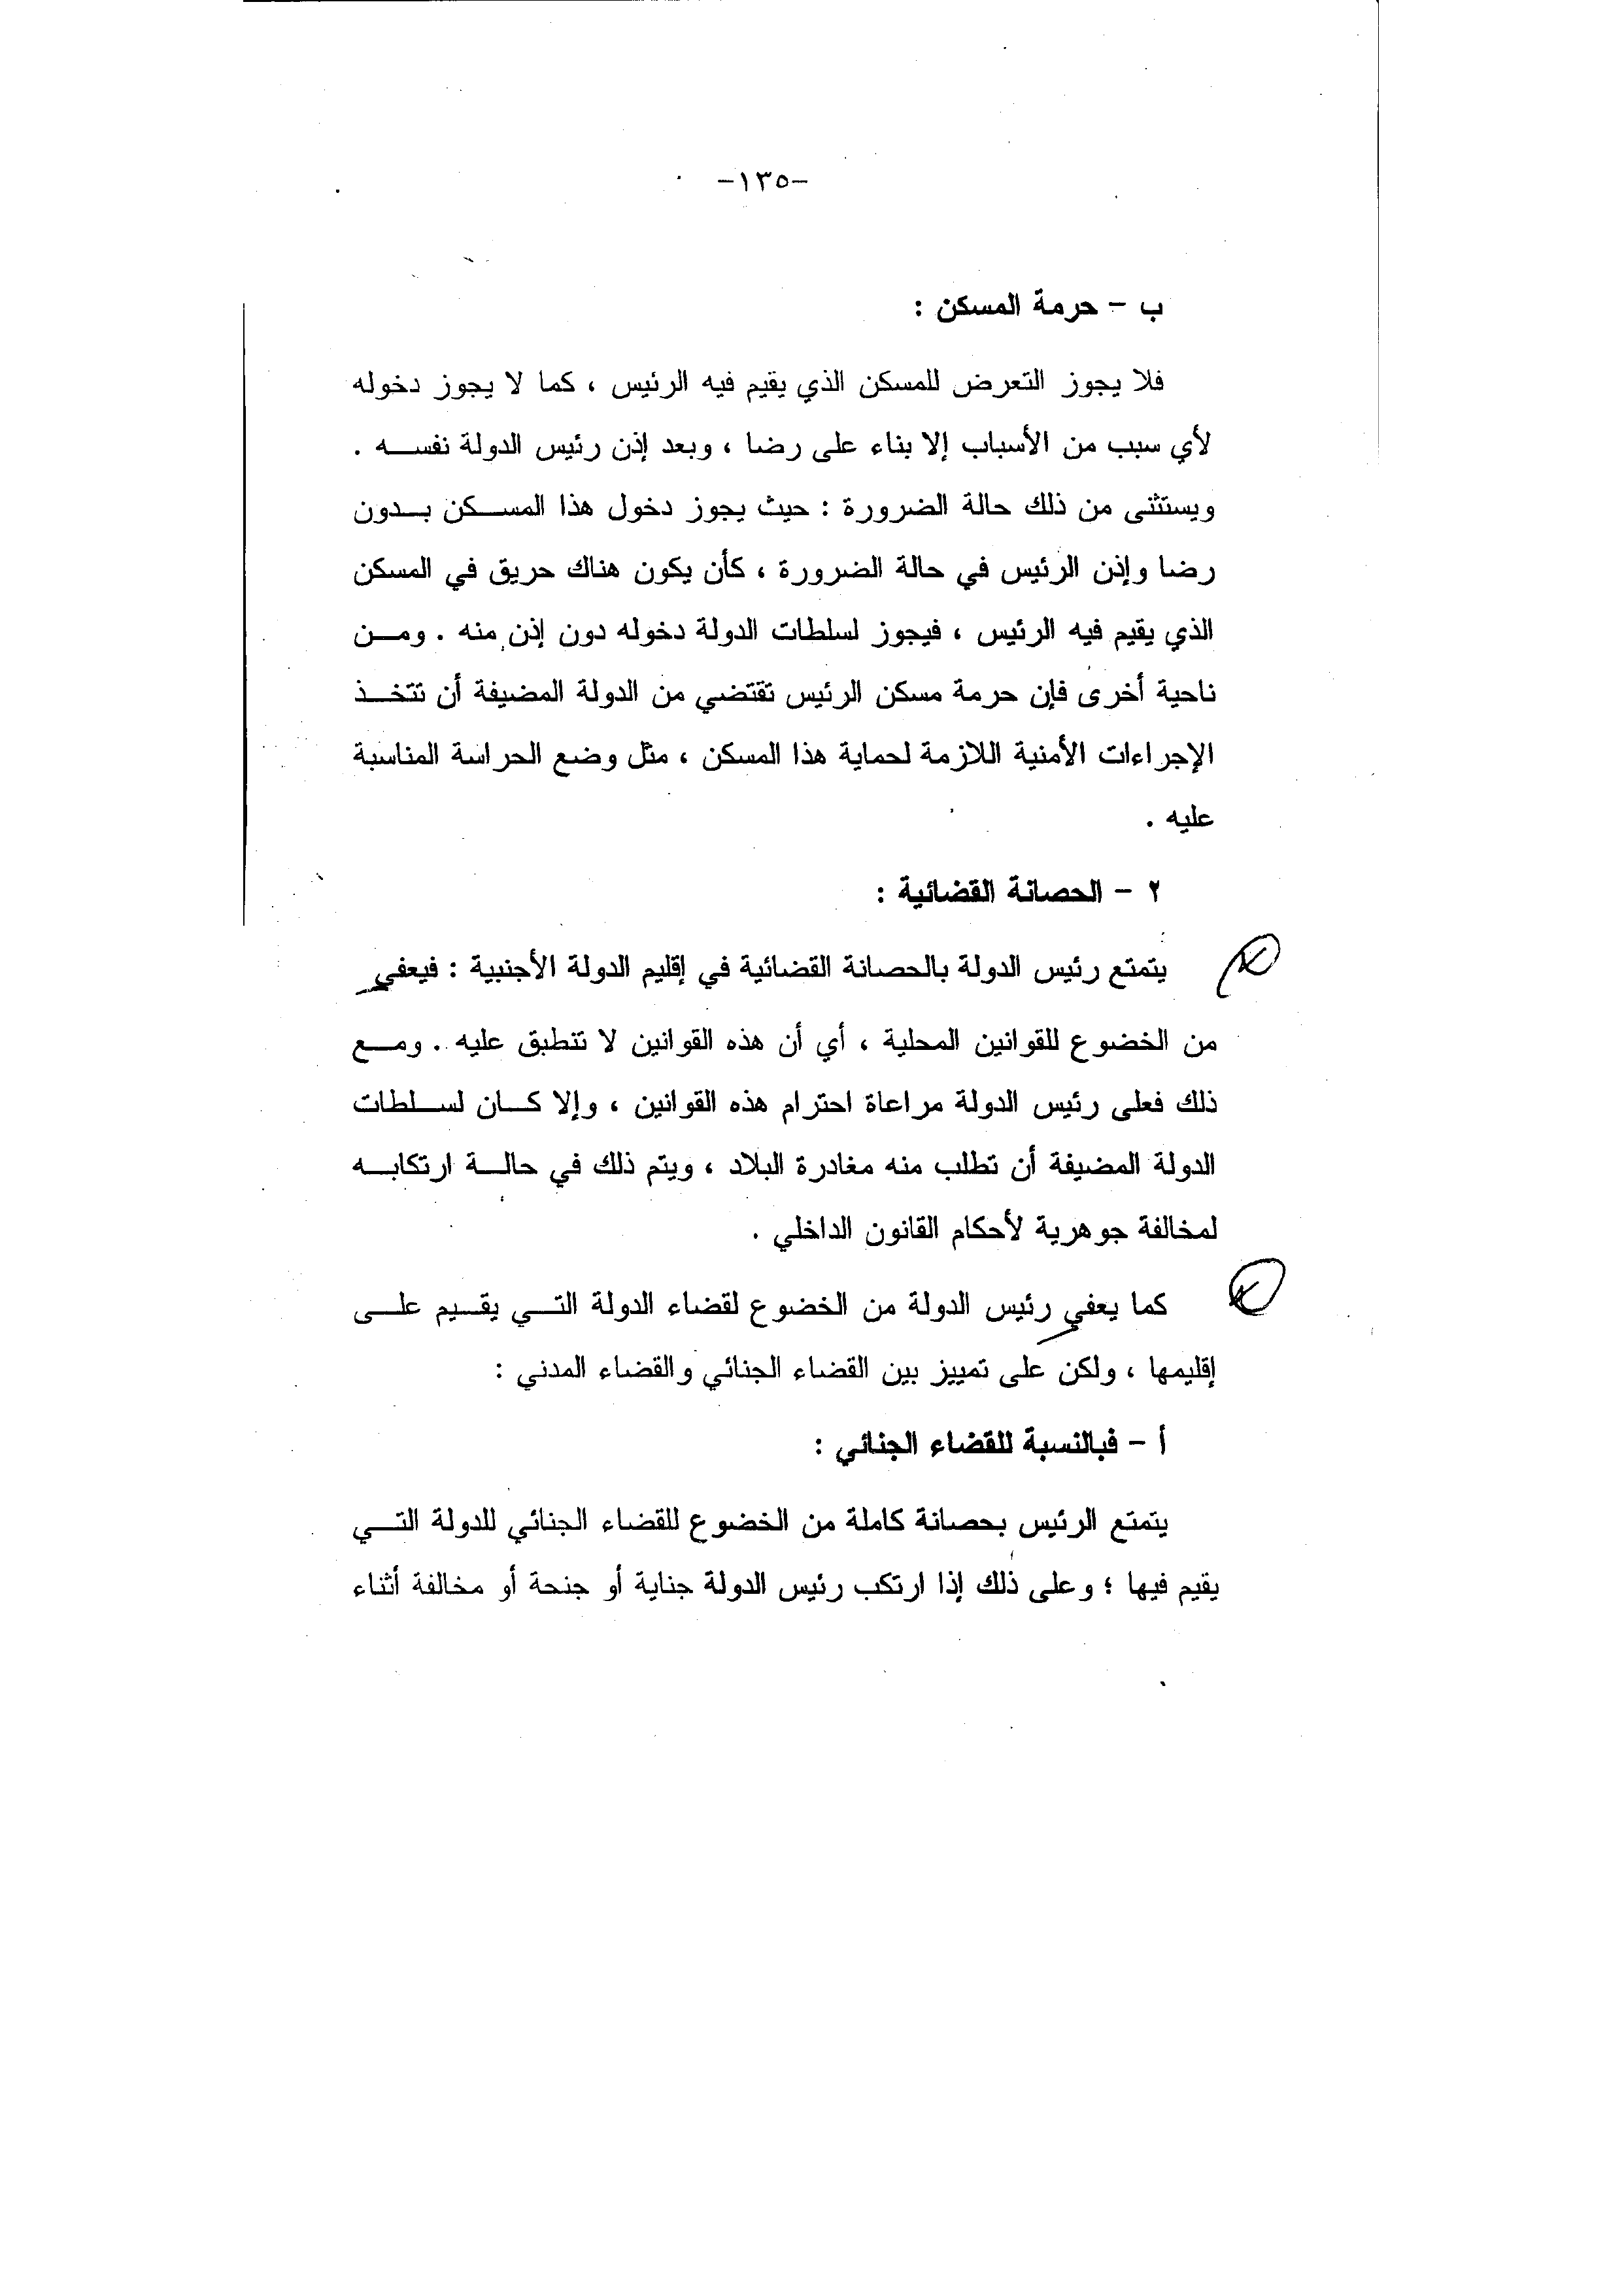 -١٣٥-
ب - حرمة المسكن :
فلا يجوز التعرض للمسكن الذي يقيم فيه الرئيس ، كما لا يجوز دخوله
لأي سبب من الأسباب إلا بناء على رضا ، وبعد إذن رئيس الدولة نفسه .
ويستثنى من ذلك حالة الضرورة : حيث يجوز دخول هذا المسكن بدون
رضا وإذن الرئيس في حالة الضرورة ، كأن يكون هناك حريق في المسكن
الذي يقيم فيه الرئيس ، فيجوز لسلطات الدولة دخوله دون إذن منه . ومن
ناحية أخرى فإن حرمة مسكن الرئيس تقتضي من الدولة المضيفة أن تتخذ
الإجراءات الأمنية اللازمة لحماية هذا المسكن ، مثل وضع الحراسة المناسبة
عليه .
٢ - الحصانة القضائية :
يتمتع رئيس الدولة بالحصانة القضائية في إقليم الدولة الأجنبية : فيعفي
من الخضوع للقوانين المحلية ، أي أن هذه القوانين لا تنطبق عليه . ومع
ذلك فعلى رئيس الدولة مراعاة احترام هذه القوانين ، وإلا كان لسلطات
الدولة المضيفة أن تطلب منه مغادرة البلاد ، ويتم ذلك في حالة ارتكابه
لمخالفة جوهرية لأحكام القانون الداخلي .
كما يعفي رئيس الدولة من الخضوع لقضاء الدولة التي يقيم على
إقليمها ، ولكن على تمييز بين القضاء الجنائي والقضاء المدني :
أ - فبالنسبة للقضاء الجنائي :
يتمتع الرئيس بحصانة كاملة من الخضوع للقضاء الجنائي للدولة التي
يقيم فيها ؛ وعلى ذلك إذا ارتكب رئيس الدولة جناية أو جنحة أو مخالفة أثناء